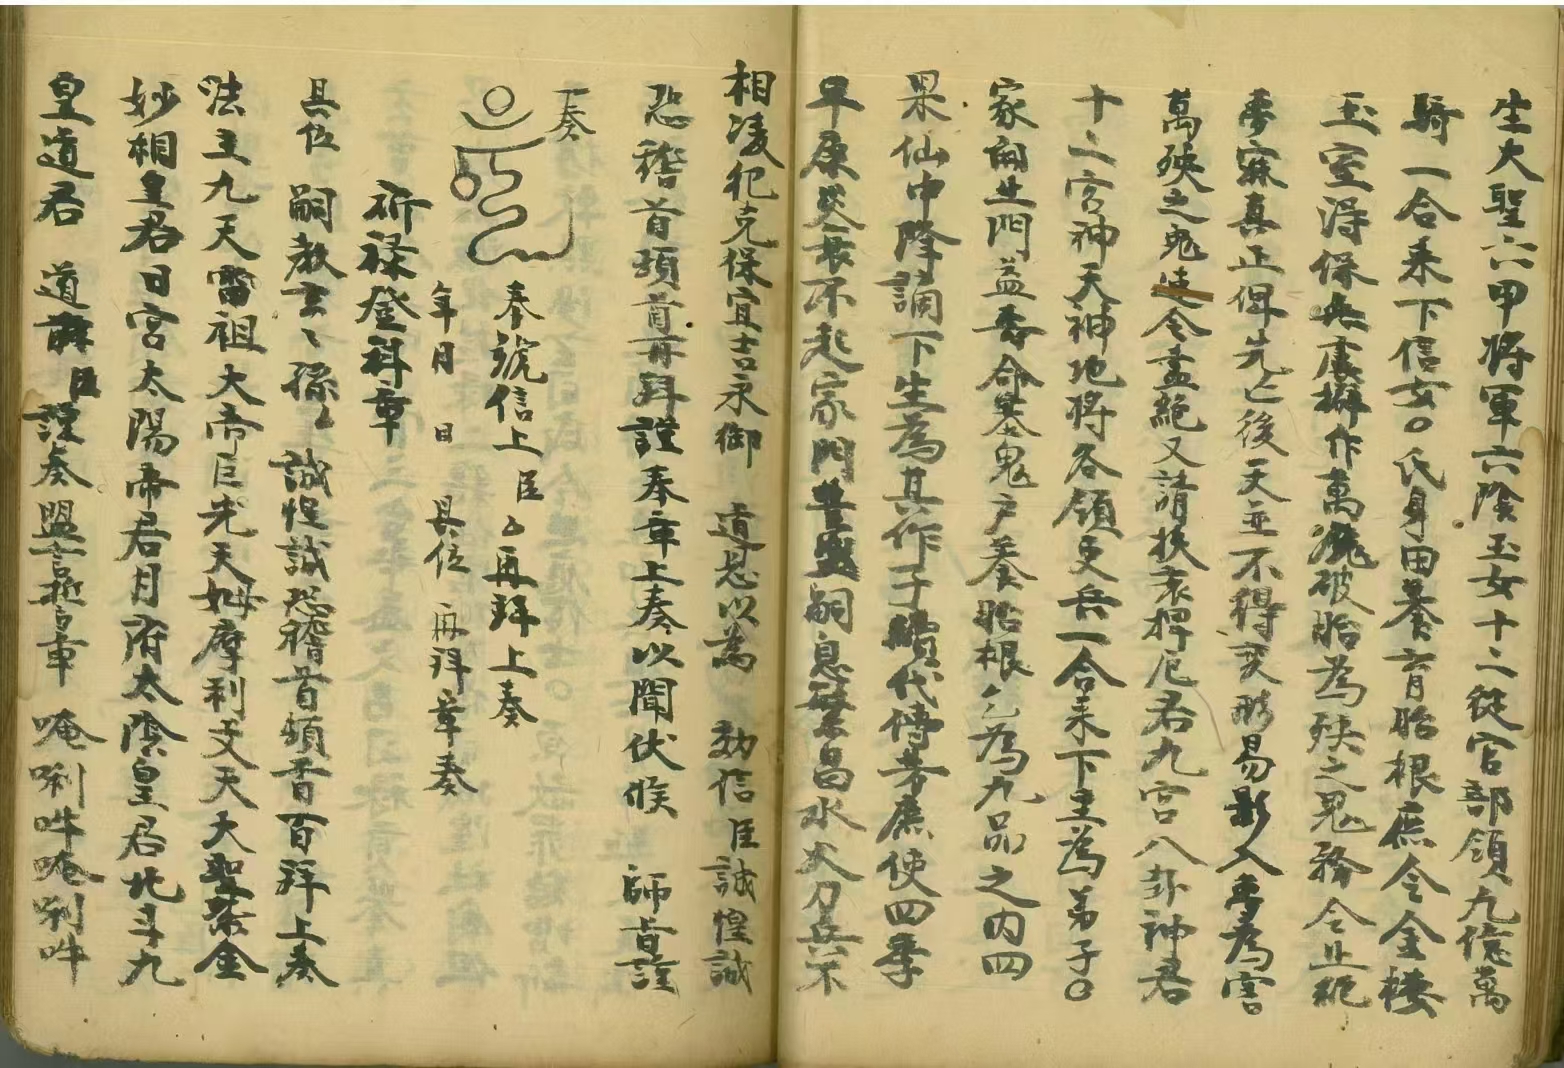 生大聖六甲將軍六陰玉女十二從官部領九億萬
騎一合乘下信女○氏身田養育胎根庶令金樓
玉室得保無虞擬作萬痾破胎為殃之鬼務令止絕
夢寐真正俾先亡後天並不得变形易影入夢為害
萬殃之鬼令盡絕又請扶衰捍厄君九宮八卦神君
十二宮神天神地將各領吏兵一合乘下主為弟子○
家開生門益壽命塞鬼戶養胎根〻為九品之内四
果仙中降調下生為其作子贖代傳芳庶使四季
早康災衰不起家門豊盛嗣息蕃昌水火刀兵不
相凌犯克保宜吉永御 道恩以為 劾信臣誠惶誠
恐稽首頓首再拜謹奉章上奏以聞伏候 師旨謹
奏
奉號信上臣么再拜上奏
年月 日 具位 再拜章奏
祈祿登科章
具位 嗣教玄〻孫么誠惶誠恐稽首頓首百拜上奏
法主九天雷祖大帝巨光天姆摩利支天大聖紫金
妙相皇君日宮太陽帝君月府太陰皇君北斗九
皇道君 道 臣謹奏盟言章 唵唎吽唵唎吽